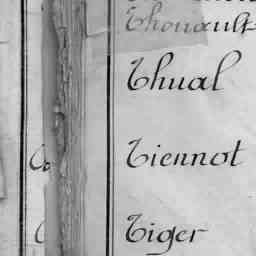 Thouault
Thual
Tiennot
Tiger